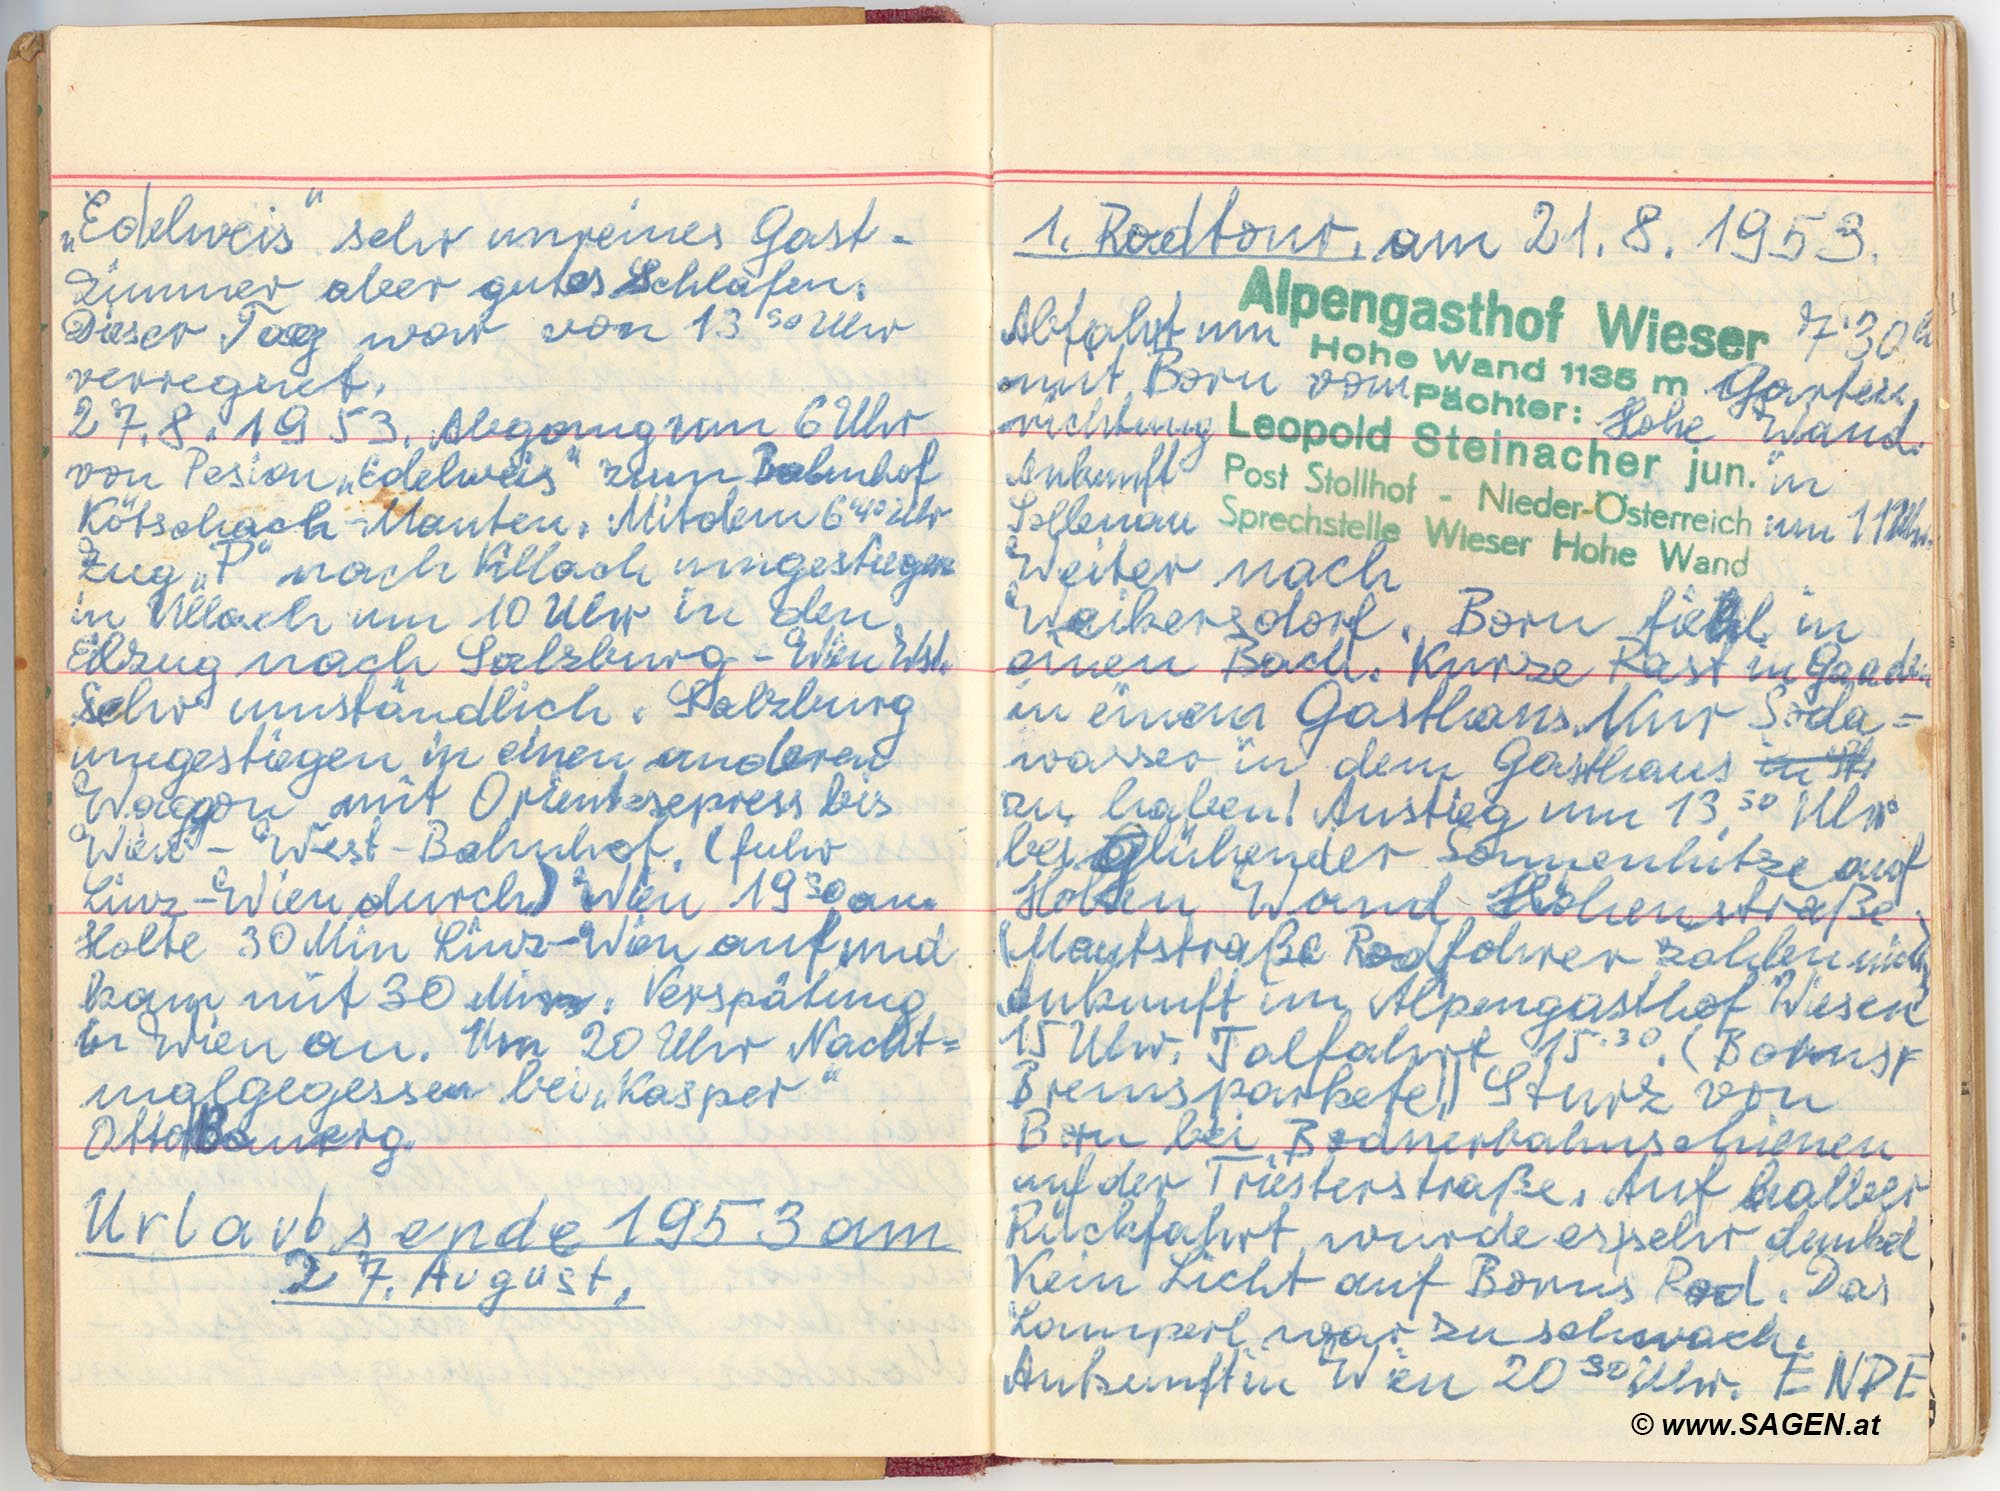 „Edelweis" sehr unreines Gast-
zimmer aber gutes Schlafen.
Dieser Tag war von 13 30 Uhr
verregnet.
27.8.1953. Abgang um 6 Uhr
von Pesion „Edelweis" zum Bahnhof
Kötschach-Mauten. Mit dem 6 40 Uhr
Zug „P" nach Villach umgestiegen
in Villach um 10 Uhr in den
Eilzug nach Salzburg-Wien Wst.
Sehr umständlich. Salzburg
umgestiegen in einen anderen
Waggon mit Orientexpress bis
Wien-West-Bahnhof. (fuhr
Linz-Wien durch) Wien 19 30 an.
Holte 30 Min Linz-Wien auf und
kam mit 30 Min. Verspätung
in Wien an. Um 20 Uhr Nacht=
malgegessen bei „Kasper"
Otto
Urlaubsende 1953 am
27. August.
1. Radtour. am 21.8.1953.
Alpengasthof Wieser
Hohe Wand 1135 m
Pächter:
Leopold Steinacher jun.
Post Stollhof - Nieder-Österreich
Sprechstelle Wieser Hohe Wand
Abfahrt um 7 30 h
mit Born vom Garten,
richtung Hohe Wand.
Ankunft in
Sollenau um 11 Uhr.
Weiter nach
Weikersdorf. Born fiel in
einen Bach. Kurze Rast in Gaaden
in einem Gasthaus. Nur Soda=
wasser in dem Gasthaus
zu haben! Anstieg um 13 30 Uhr
bei glühender Sonnenhitze auf
Hohen Wand Höhenstraße.
(Mautstraße Radfahrer zahlen nicht)
Ankunft im Alpengasthof Wieser
15 Uhr. Talfahrt 15.30. (Borns
Bremsparkete!) Sturz von
Born bei Badnerbahnschienen
auf der Triesterstraße. Auf halber
Rückfahrt wurde es sehr dunkel
Kein Licht auf Borns Rad. Das
Lamperl war zu schwach.
Ankunft in Wien 20 30 Uhr. ENDE
© www.SAGEN.at